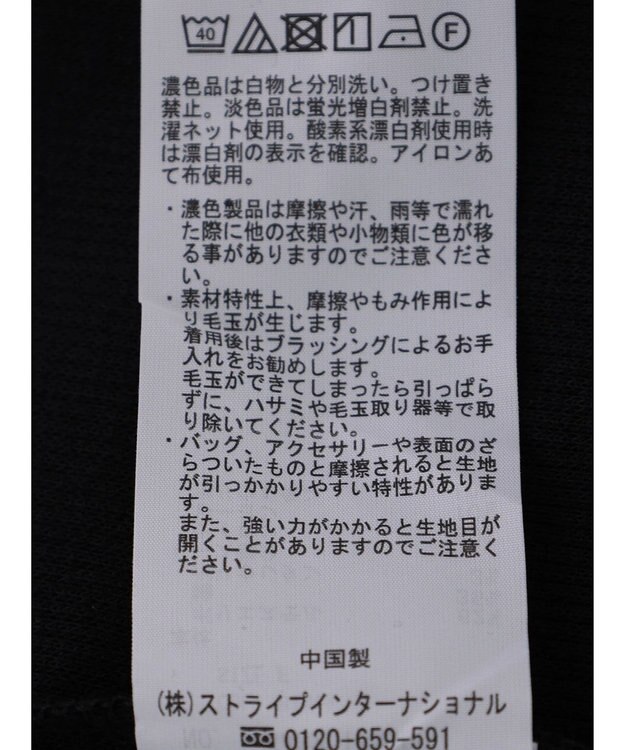 40 F
濃色品は白物と分別洗い。つけ置き
禁止。淡色品は蛍光増白剤禁止。洗
濯ネット使用。酸素系漂白剤使用時
は漂白剤の表示を確認。アイロンあ
て布使用。
・濃色製品は摩擦や汗、雨等で濡れ
た際に他の衣類や小物類に色が移
る事がありますのでご注意くださ
い。
・素材特性上、摩擦やもみ作用によ
り毛玉が生じます。
着用後はブラッシングによるお手
入れをお勧めします。
毛玉ができてしまったら引っぱら
ずに、ハサミや毛玉取り器等で取
り除いてください。
・バッグ、アクセサリーや表面のざ
らついたものと摩擦されると生地
が引っかかりやすい特性がありま
す。
また、強い力がかかると生地目が
開くことがありますのでご注意く
ださい。
中国製
(株)ストライプインターナショナル
0120-659-591